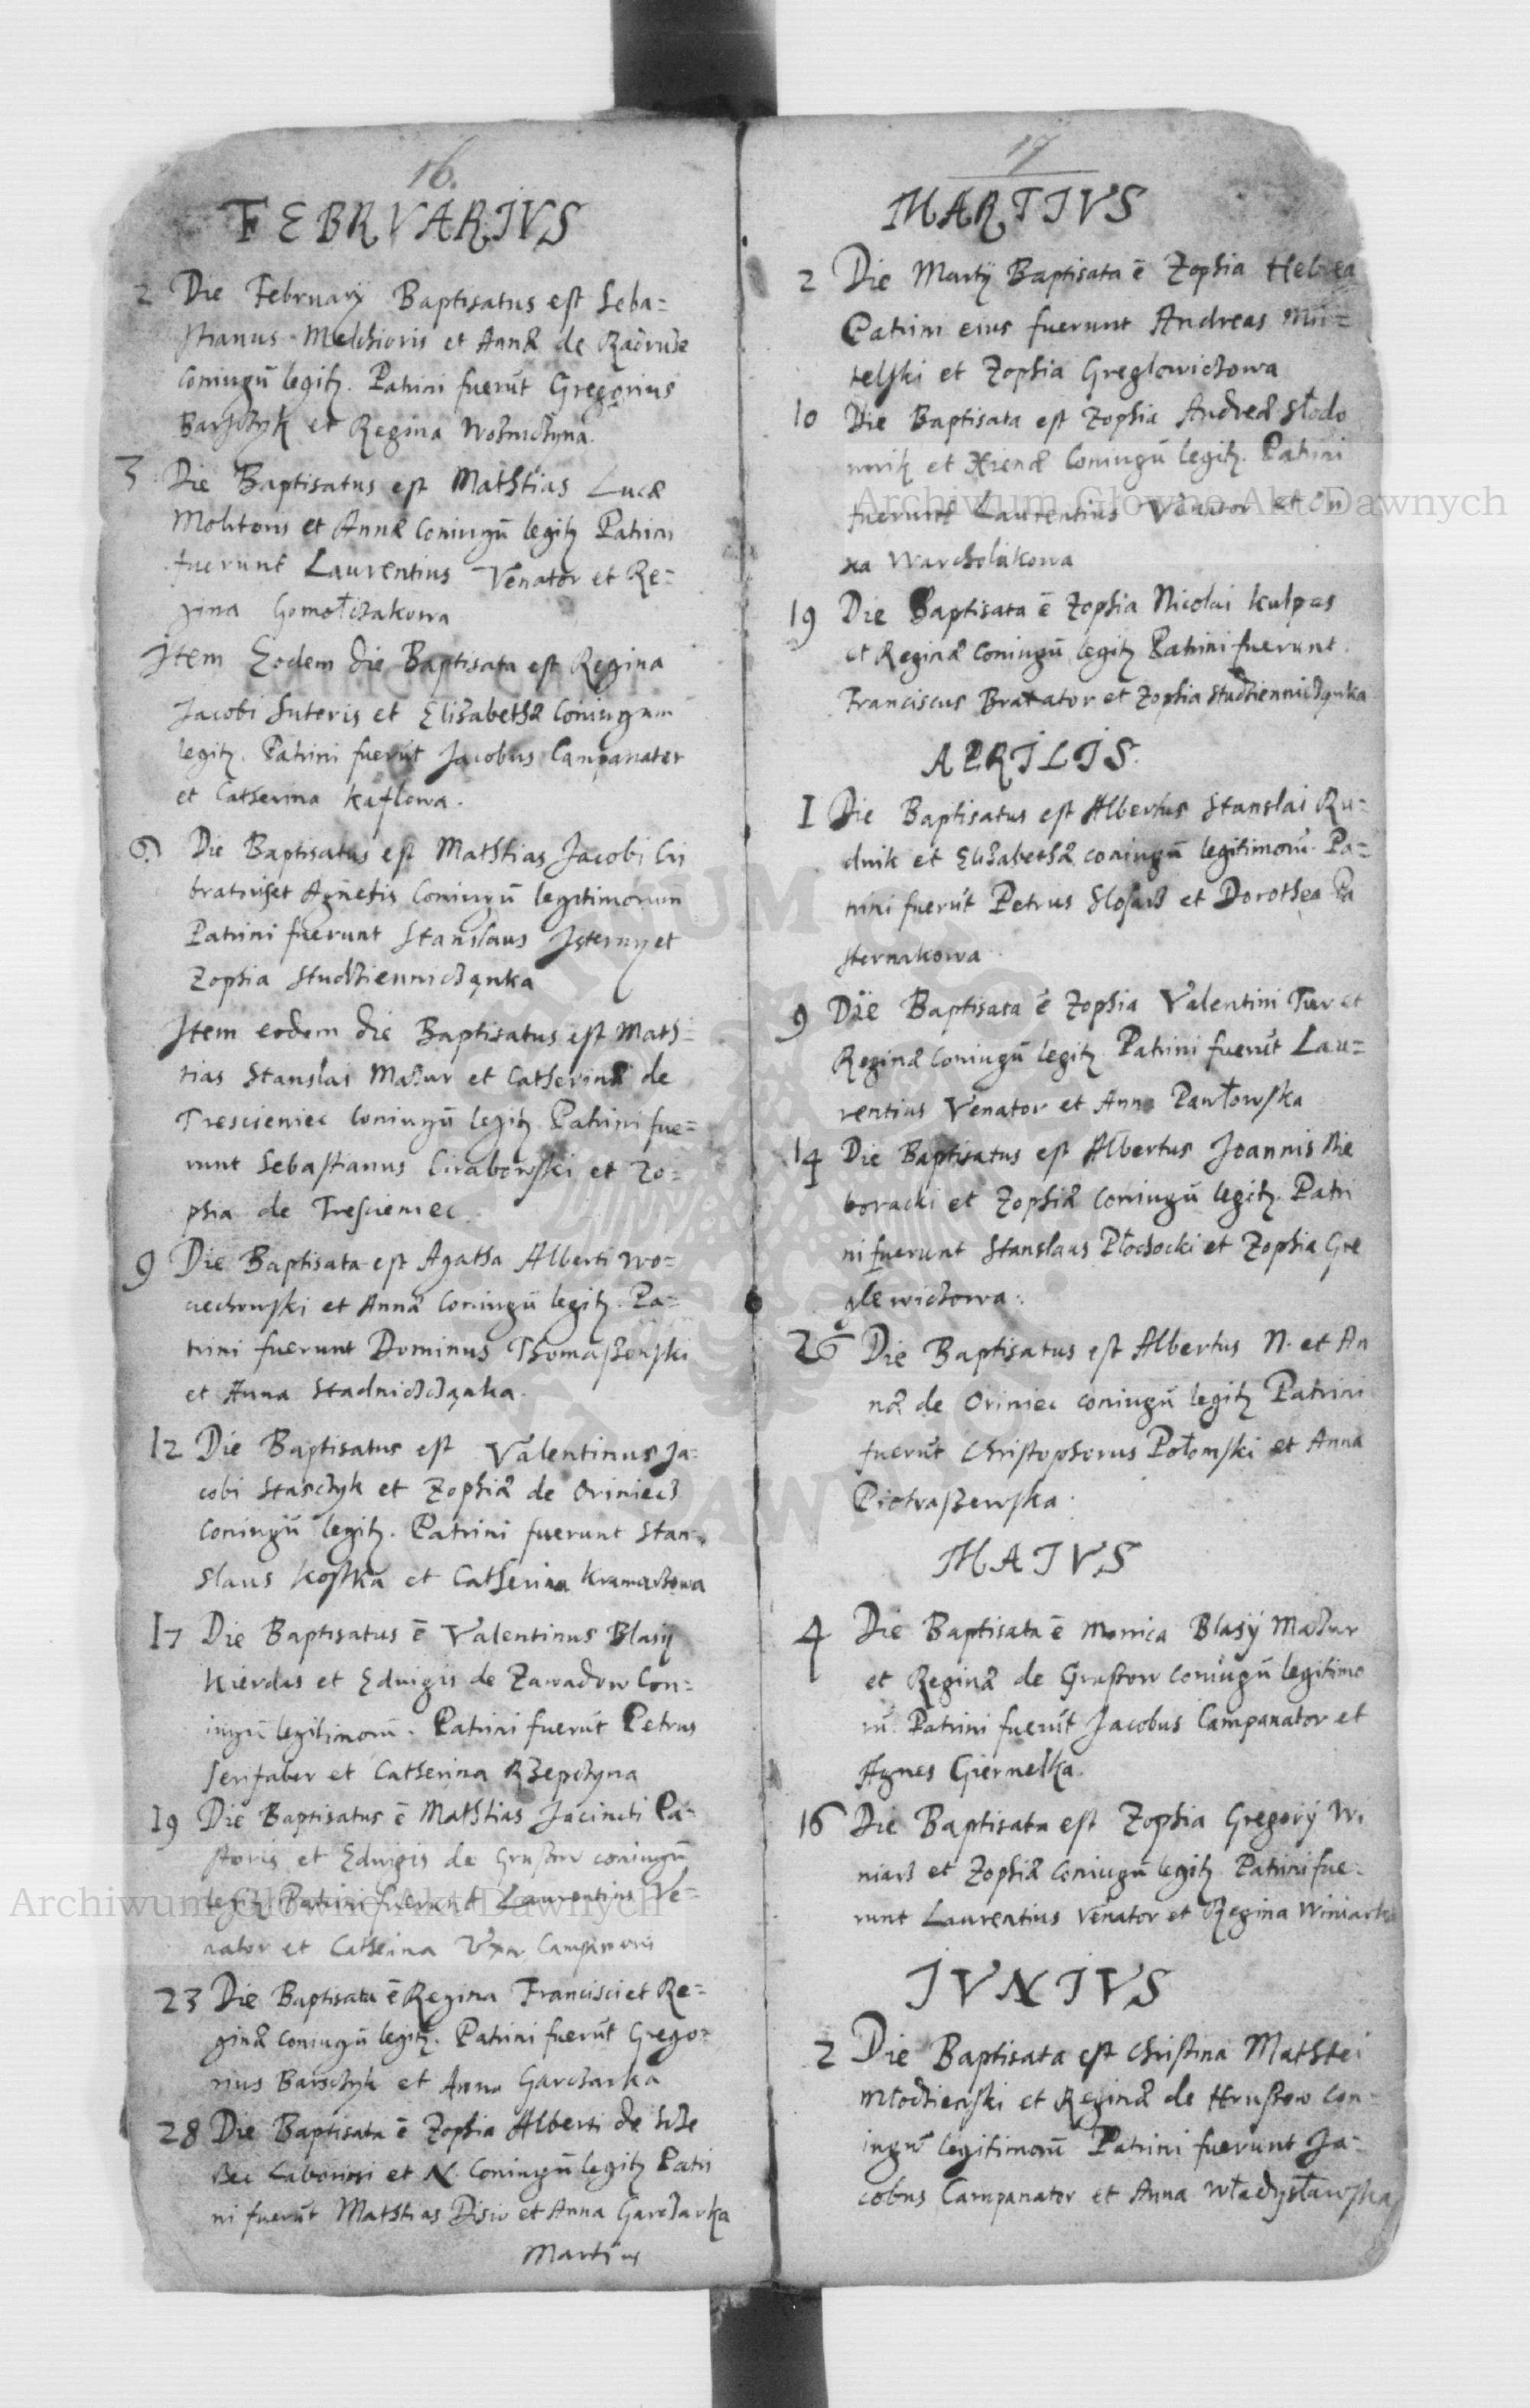 16.
FEBRVARIVS
2 Die Februarÿ Baptisatus est Seba=
stianus Melchioris et Annæ de Radruze
Coniugū legitz. Patrini fuerūt Gregorius
Barszczyk et Regina Wozniczyna.
3 Die Baptisatus est Mathias Lucæ
Molitoris et Annæ Coniugū legitz Patrini
fuerunt Laurentius Venator et Re=
gina Gomołczakowa
Item Eodem die Baptisata est Regina
Jacobi Suteris et Elizabethæ Coniugum
legitz. Patrini fuerūt Jacobus Campanater
et Catherina Kaflowa.
6 Die Baptisatus est Mathias Jacobi Cri
bratoris et Agnetis Coniugū legitimorum
Patrini fuerunt Stanslaus et
Zophia Studziennicząnka
Item eodem die Baptisatus est Math=
tias Stanslai Mazur et Catherinæ de
Trescieniec Coniugū legitz Patrini fue=
runt Sebastianus Ciraborski et Zo=
phia de Trescieniec.
9 Die Baptisata est Agatha Alberti Wo=
ciechowski et Annæ Coniugū legitz. Pa=
trini fuerunt Dominus Thomaszewski
et Anna Stadniczcząnka.
12 Die Baptisatus est Valentinus Ja=
cobi Stasczyk et Zophiæ de Oriniecz
Coniugū legitz. Patrini fuerunt Stan=
slaus Kostka et Catherina Kramarzowa
17 Die Baptisatus ē Valentinus Blasÿ
Kierdas et Eduigis de Zawadow Con=
iugū legitimorū. Patrini fuerūt Petrus
Serifaber et Catherina Rzepczyna
19 Die Baptisatus ē Mathias Jacincti Pa=
storis et Eduigis de Gruszow coniugū
legitz Patrini fuerunt Laurentius Ve=
nator et Catheina Vxor Campanoris
23 Die Baptisata ē Regina Francisci et Re=
ginæ Coniugū legitz. Patrini fuerūt Grego=
rius Barsczyk et Anna Garczarka
28 Die Baptisata ē Zophia Alberti de
Laboriosi et N. Coniugū legitz Patri
ni fuerūt Mathias Disiv et Anna Garczarka
Martius
17
MARTIVS
2 Die Martÿ Baptisata ē Zophia Hebrea
Patrini eius fuerunt Andreas Mü=
telski et Zophia Greglowiczowa
10 Die Baptisata est Zophia Andreæ Słodo
wnik et Xienæ Coniugū legitz. Patrini
fuerunt Laurentius Venator et On
xa Warcholakowa
19 Die Baptisata ē Zophia Nicolai Kulpas
et Reginæ Coniugū legitz Patrini fuerunt
Franciscus Braxator et Zophia Studziennicząnka
APRILIS.
1 Die Baptisatus est Albertus Stanslai Ru=
dnik et Elizabethæ coniugū legitimorū. Pa=
trini fuerūt Petrus Slosarz et Dorothea Pa
sternakowa
9 Die Baptisata ē Zophia Valentini Tur et
Reginæ Coniugū legitz Patrini fuerūt Lau=
rentius Venator et Anna Pawłowska
14 Die Baptisatus est Albertus Joannis Nie
boracki et Zophiæ Coniugū legitz. Patri
ni fuerunt Stanslaus Płochocki et Zophia Gre
glewiczowa.
26 Die Baptisatus est Albertus N. et An
næ de Oriniec coniugū legitz Patrini
fuerūt Christophorus Połomski et Anna
Piotraszewska.
MAIVS
4 Die Baptisata ē Monica Blasÿ Mazur
et Reginæ de Gruszow Coniugū legitimo
rū. Patrini fuerūt Jacobus Campanator et
Agnes Giernelka.
16 Die Baptisata est Zophia Gregorÿ Wi
niarz et Zophiæ Coniugū legitz Patrini fue=
runt Laurentius Venator et Regina Winiarka
IVNIVS
2 Die Baptisata est Christina Mathei
Młodzienski et Reginæ de Hruszow Con=
iugū legitimorū Patrini fuerunt Ja=
cobus Campanator et Anna Władysławska
Archiwum Główne Akt Dawnych
Archiwum Główne Akt Dawnych